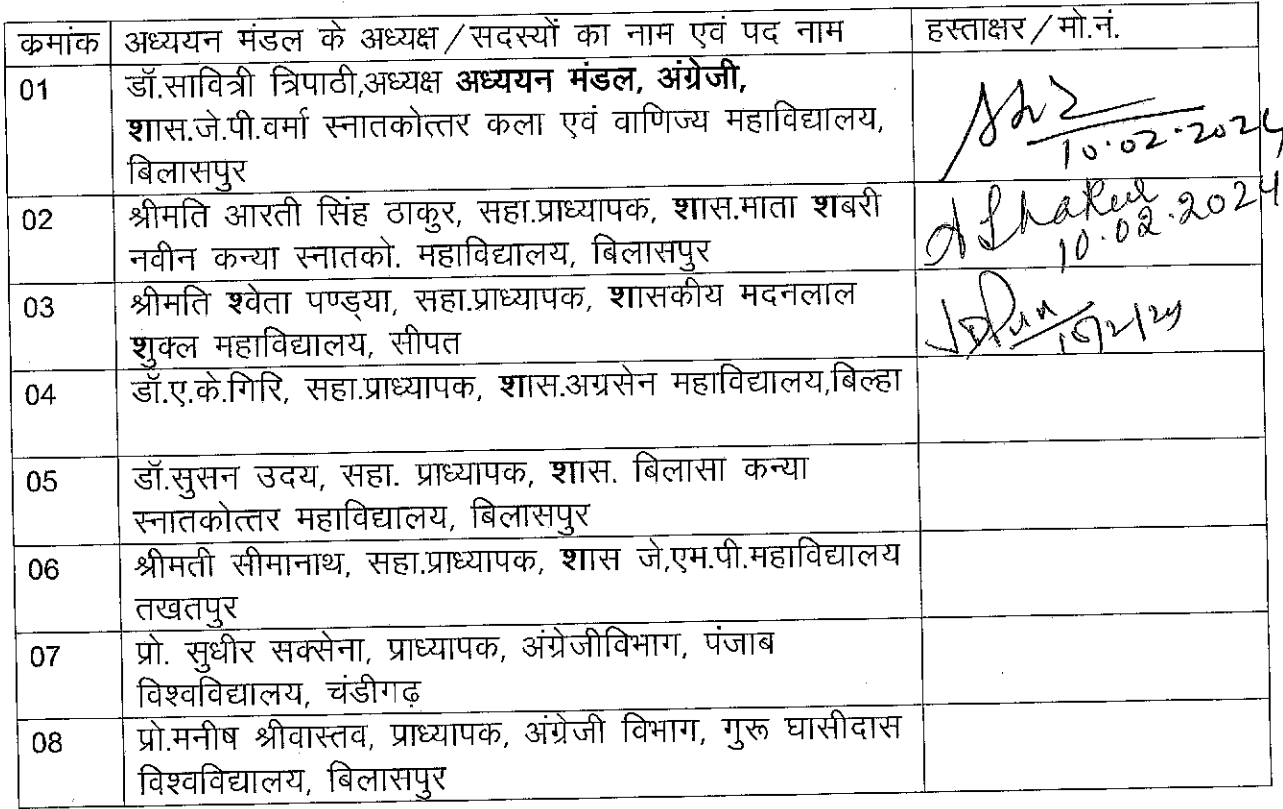 कमांक अध्ययन मंडल के अध्यक्ष/सदस्यों का नाम एवं पद नाम हस्ताक्षर/मो.नं.
01 डॉ.सावित्री त्रिपाठी,अध्यक्ष अध्ययन मंडल, अंग्रेजी,
शास.जे.पी.वर्मा स्नातकोत्तर कला एवं वाणिज्य महाविद्यालय,
बिलासपुर
10.02.2024
02 श्रीमति आरती सिंह ठाकुर, सहा.प्राध्यापक, शास.माता शबरी
नवीन कन्या स्नातको. महाविद्यालय, बिलासपुर
AThakur
10.02.2024
03 श्रीमति श्वेता पण्ड्या, सहा.प्राध्यापक, शासकीय मदनलाल
शुक्ल महाविद्यालय, सीपत
10/2/24
04 डॉ.ए.के.गिरि, सहा.प्राध्यापक, शास.अग्रसेन महाविद्यालय,बिल्हा
05 डॉ.सुसन उदय, सहा. प्राध्यापक, शास. बिलासा कन्या
स्नातकोत्तर महाविद्यालय, बिलासपुर
06 श्रीमती सीमानाथ, सहा.प्राध्यापक, शास जे,एम.पी.महाविद्यालय
तखतपुर
07 प्रो. सुधीर सक्सेना, प्राध्यापक, अंग्रेजीविभाग, पंजाब
विश्वविद्यालय, चंडीगढ़
08 प्रो.मनीष श्रीवास्तव, प्राध्यापक, अंग्रेजी विभाग, गुरू घासीदास
विश्वविद्यालय, बिलासपुर